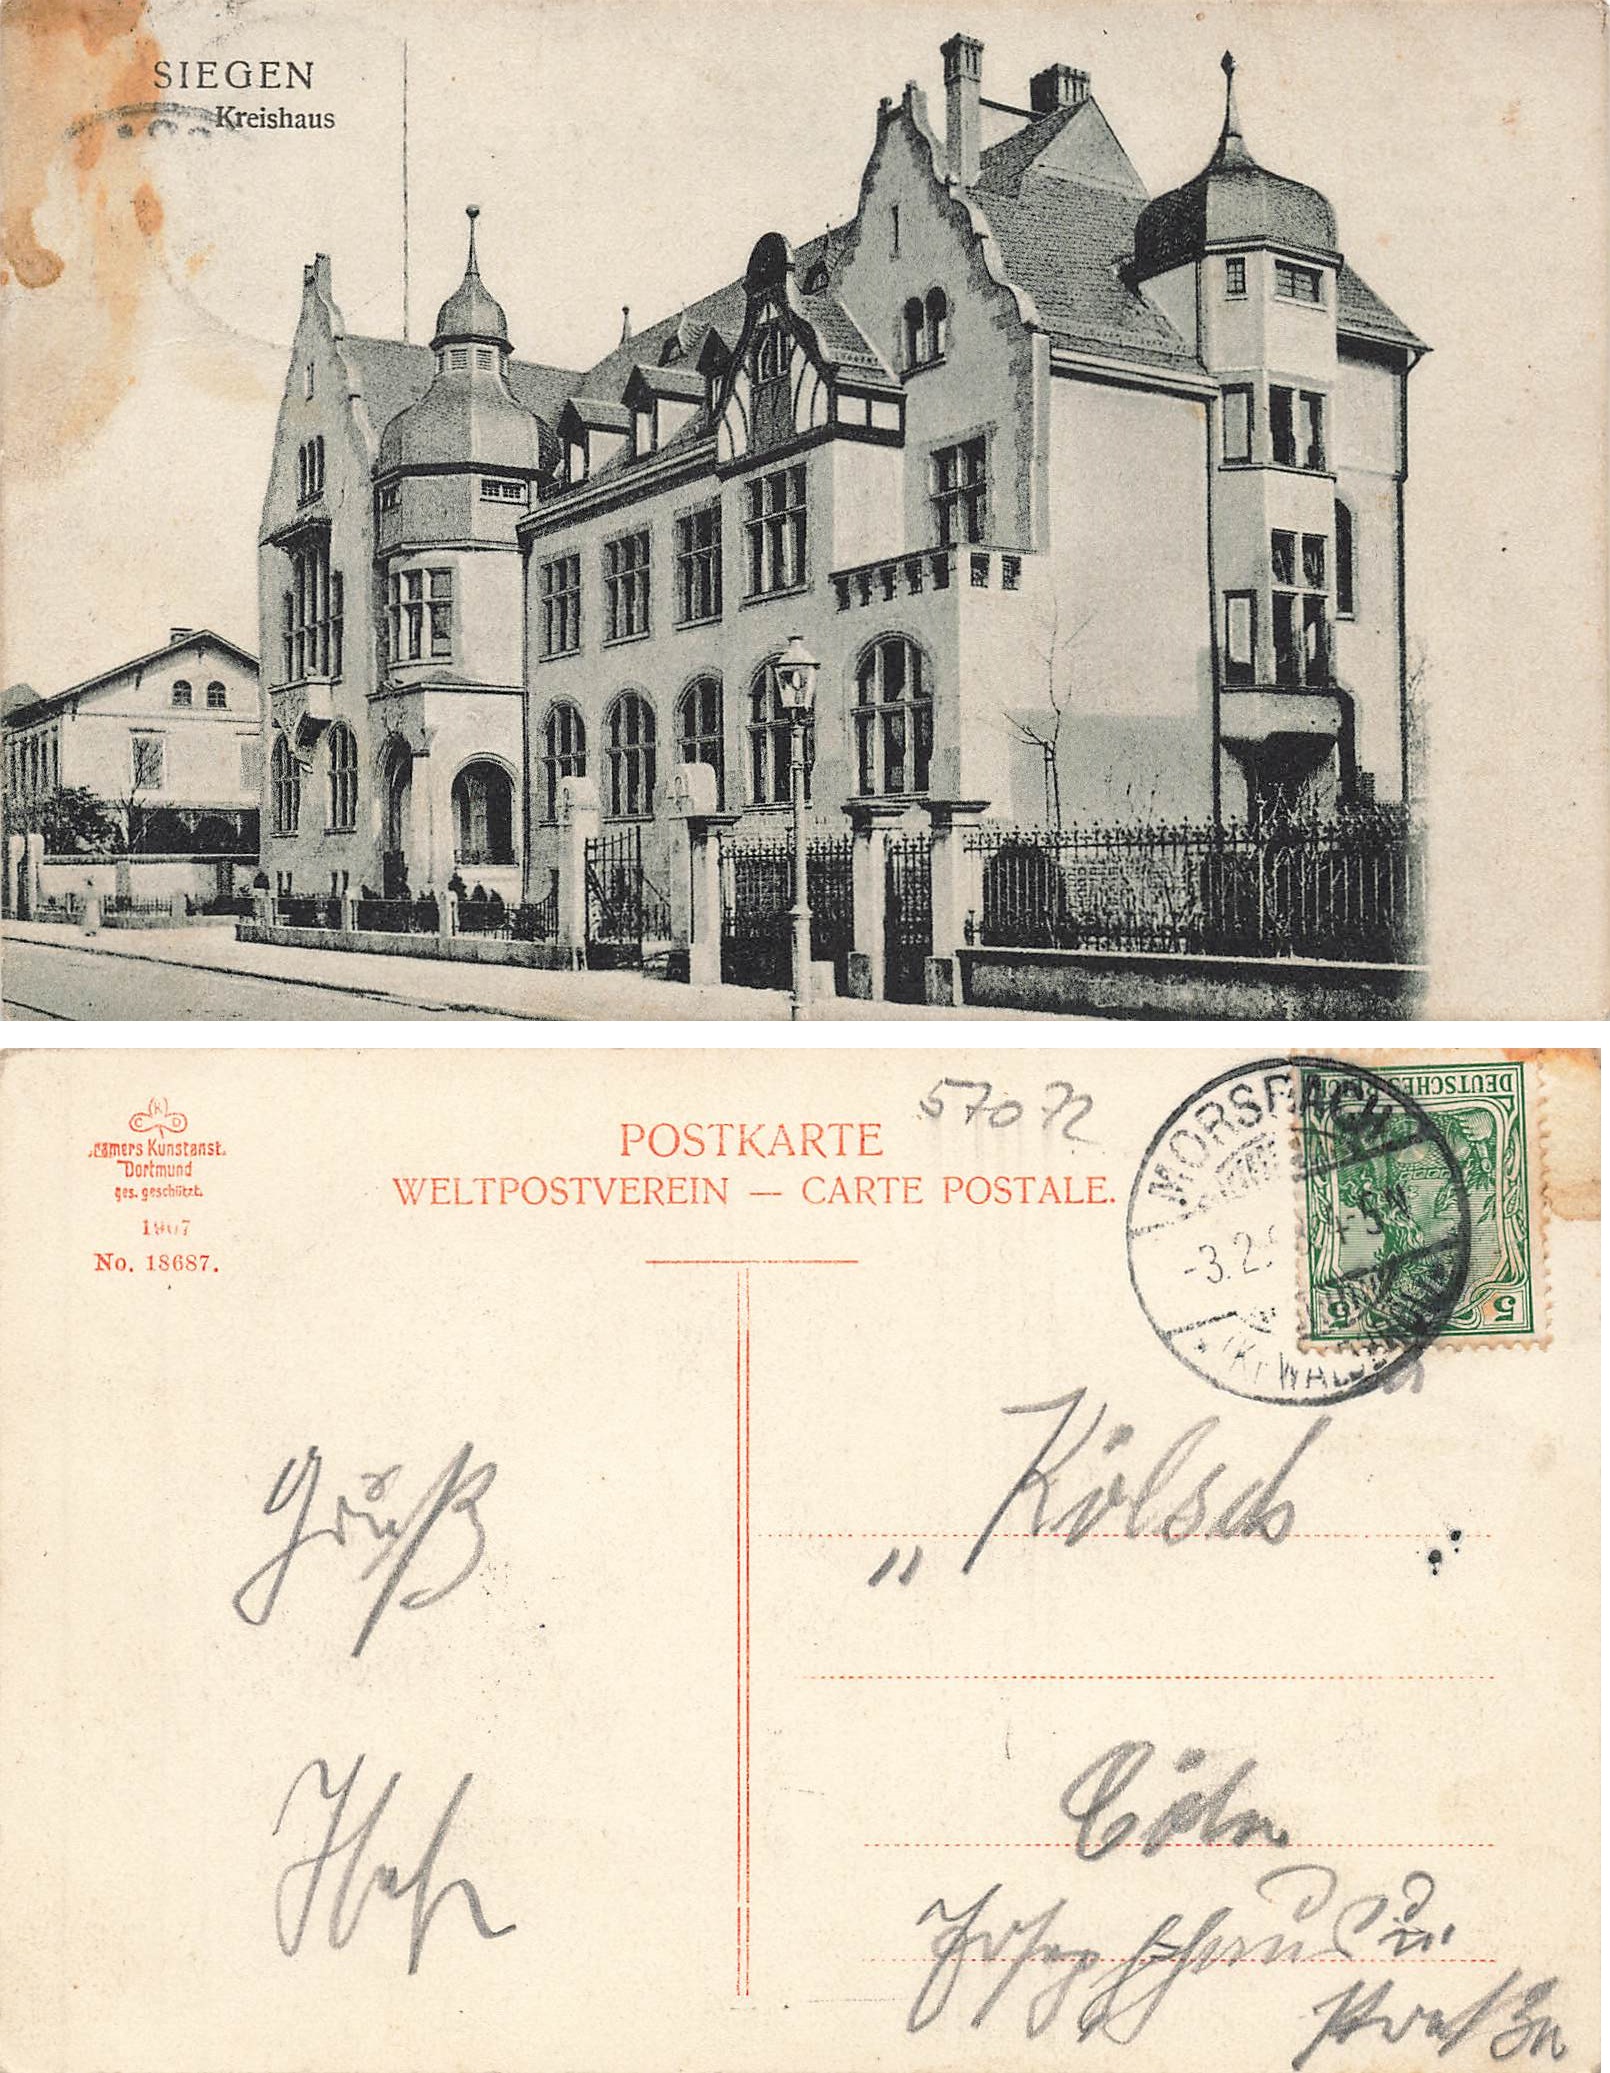 SIEGEN
Kreishaus
K C D
Kramers Kunstanst.
Dortmund
ges. geschützt.
1907
No. 18687.
57072
POSTKARTE
WELTPOSTVEREIN — CARTE POSTALE.
MORSBACH
-3.2. 4-5 N
(Kr WALDBRÖL)
DEUTSCHES REICH
5 5
Gruß
„ Kölsch
Cöln
Josephhaus